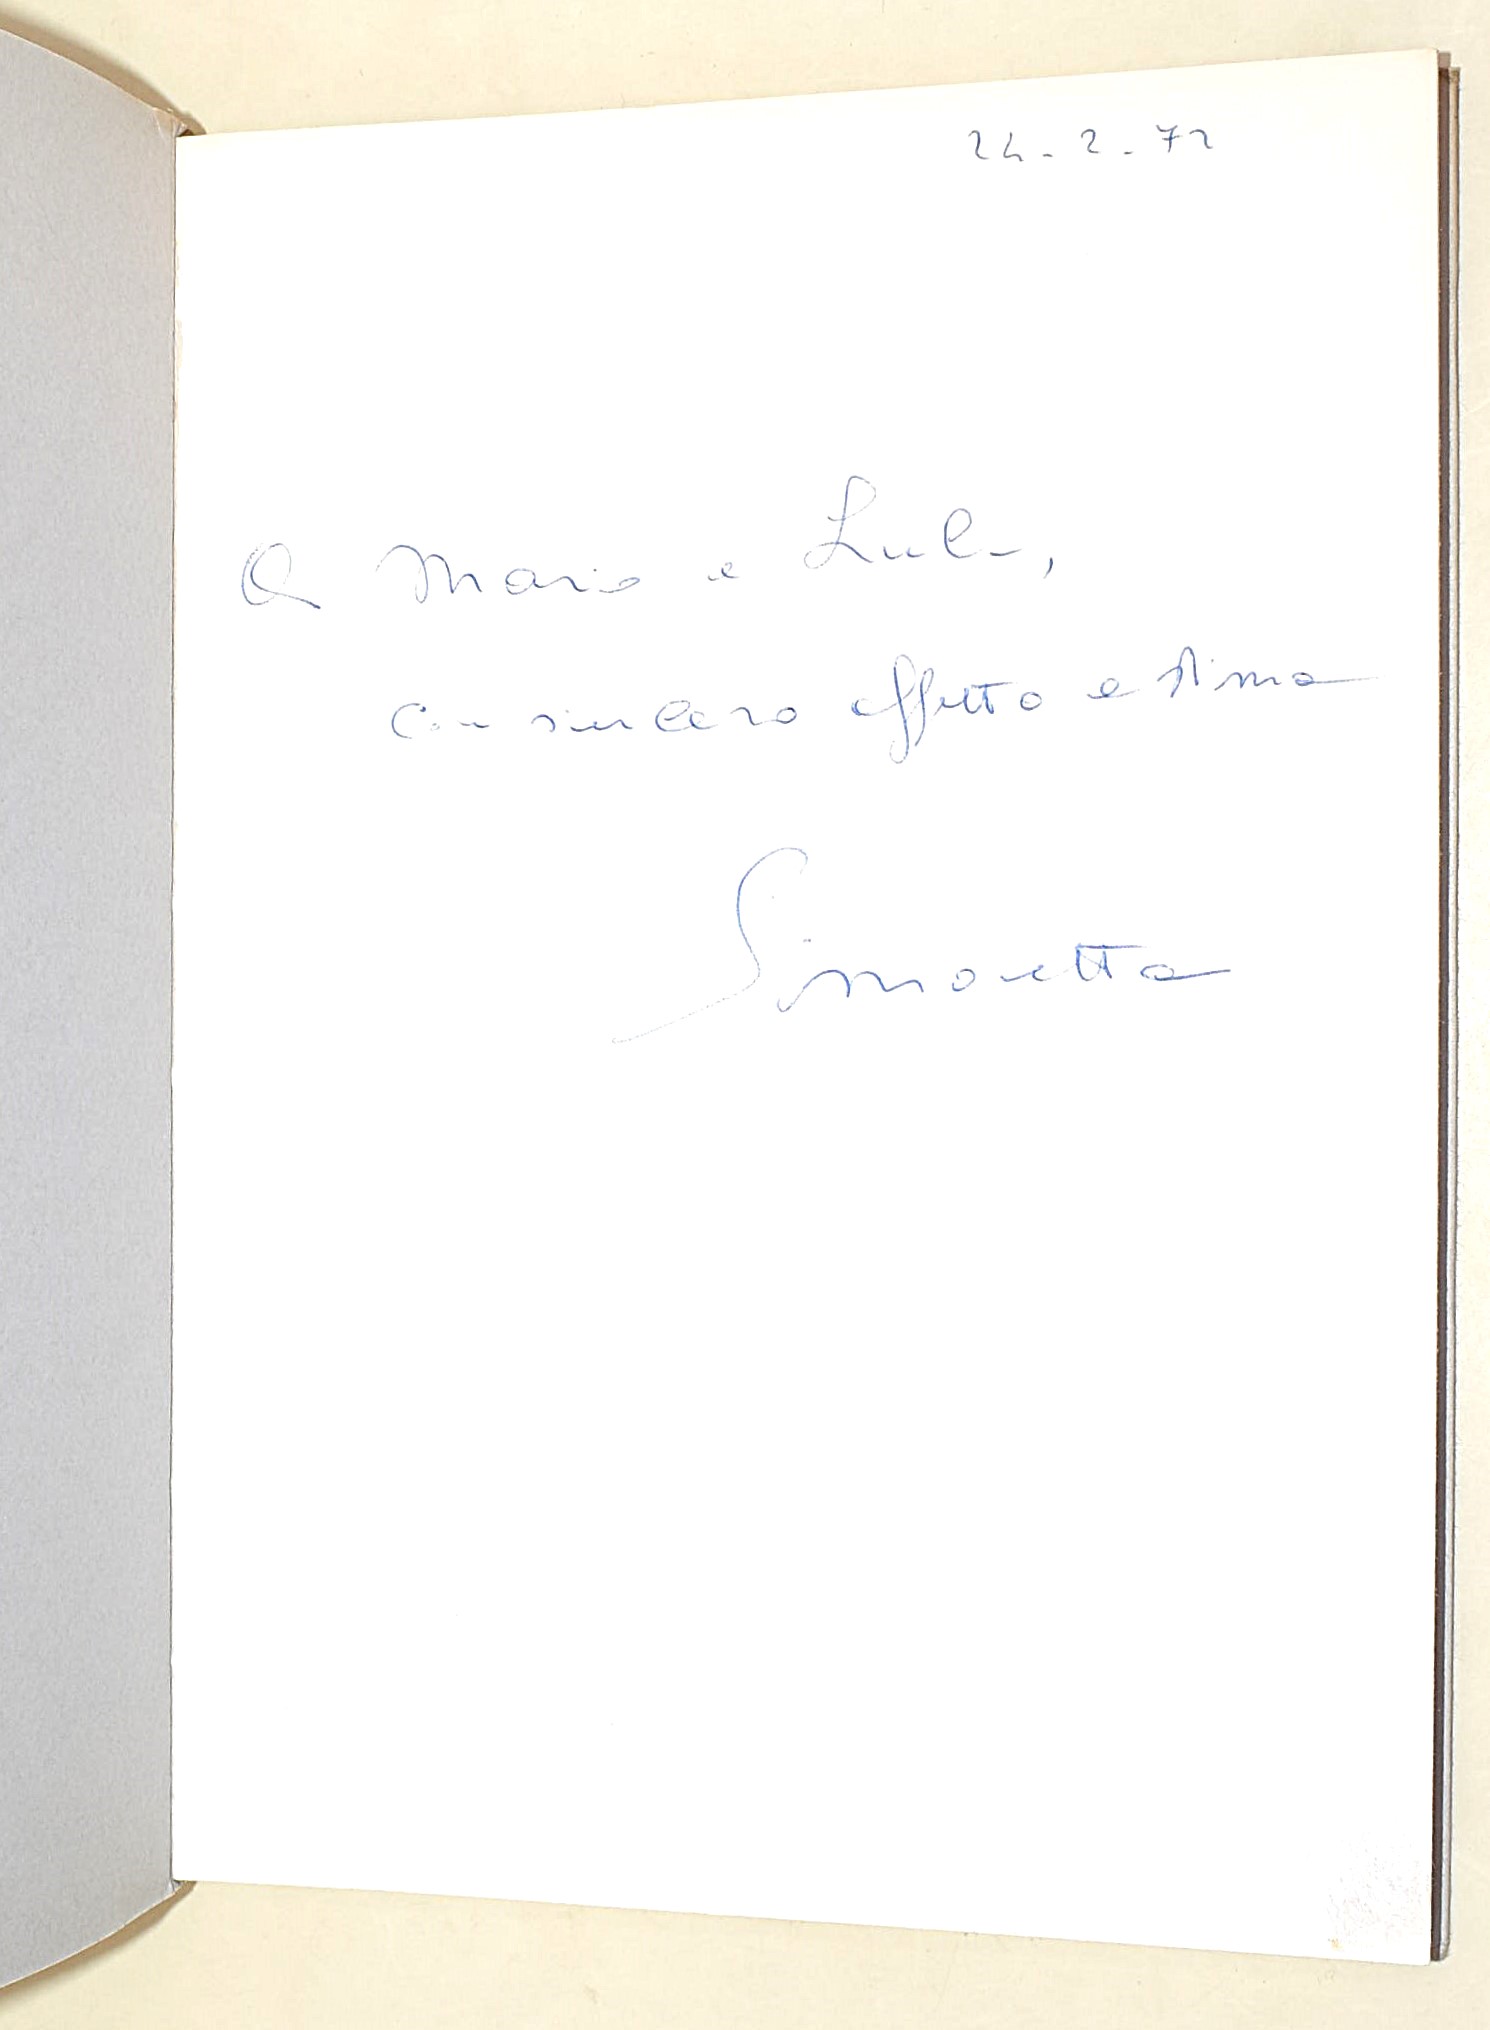 24-2-72
A Mario e Lula,
con sincero affetto e stima
Simonetta